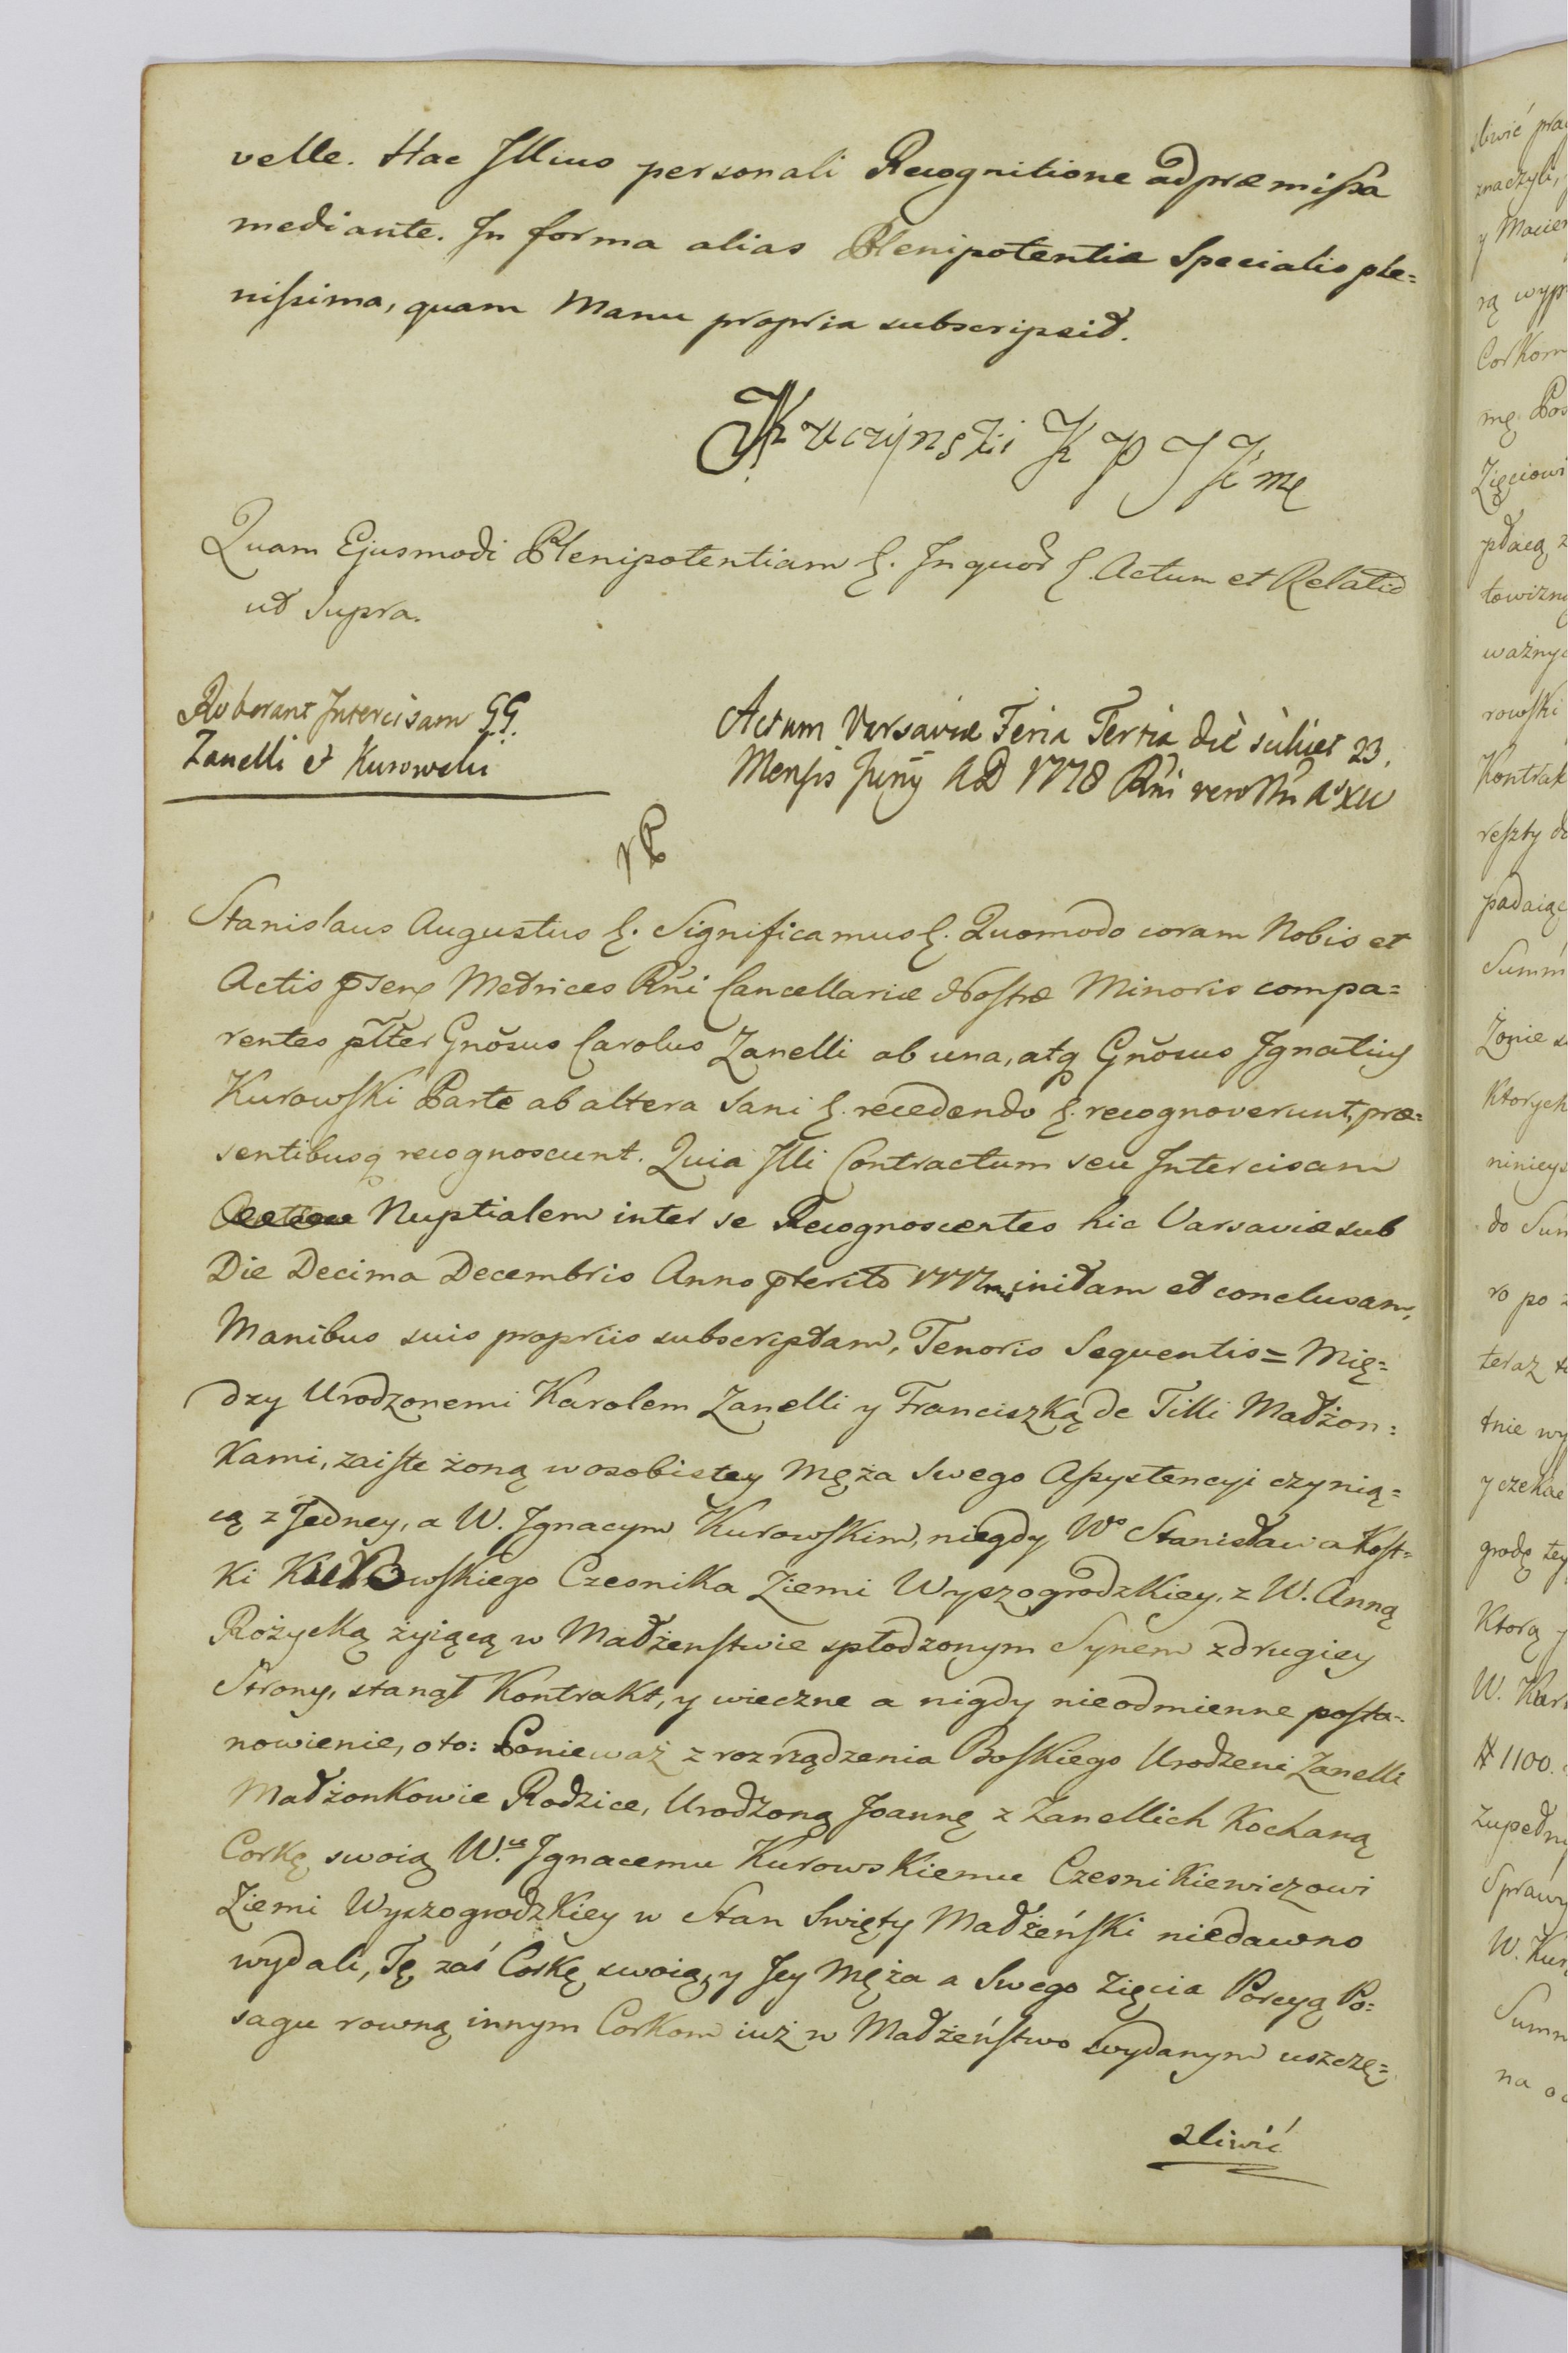 velle. Hac Illius personali Recognitione ad præmissa
mediante. In forma alias Plenipotentiæ Specialis ple=
nissima, quam Manu propria subscripsit.
Kuczynski K P J K mę
Quam Ejusmodi Plenipotentiam &. In quor &. Actum et Relatio
ut Supra.
Roborant Intercisam GG.
Zanelli et Kurowski
Actum Varsaviæ Feria Tertia die scilicet 23.
Mensis Junÿ AD 1778 Rni vero Nri A° XIV
Stanislaus Augustus &. Significamus &. Quomodo coram Nobis et
Actis pntens Metrices Rni Cancellariæ Nostræ Minoris compa=
rentes pltter Gnosus Carolus Zanelli ab una, atq Gnosus Ignatius
Kurowski Parte ab altera sani &. recedendo &. recognoverunt, præ=
sentibusq recognoscunt. Quia Illi Contractum seu Intercisam
Nuptialem inter se Recognoscentes hic Varsaviæ sub
Die Decima Decembris Anno pterito 1777mo initam et conclusam,
Manibus suis propriis subscriptam, Tenoris Sequentis = Mię=
dzy Urodzonemi Karolem Zanelli y Franciszką de Tilli Małżon=
kami, zaiste żoną w osobistey Męża Swego Assystencyi czynią=
cą z Jedney, a W. Jgnacym Kurowskim, niegdy W° Stanisława Kost=
ki Kurowskiego Czesnika Ziemi Wyszogrodzkiey, z W. Anną
Rożycką żyiącą w Małżenstwie spłodzonym Synem z drugiey
Strony, stanął Kontrakt, y wieczne a nigdy nieodmienne posta=
nowienie, oto: Ponieważ z rozrządzenia Boskiego Urodzeni Zanelli
Małżonkowie Rodzice, Urodzoną Joannę z Zanellich Kochaną
Corkę swoią W.us Jgnacemu Kurowskiemu Czesnikiewiczowi
Ziemi Wyszogrodzkiey w Stan Swięty Małżeński niedawno
wydali, Tę zaś Corkę swoią, y Jey Męża a Swego Zięcia Porcyą Po=
sagu rowną innym Corkom iuż w Małżeństwo wydanym uszczę=
sliwić
sliwić
znaczyli,
y Macie
rą wyp
Corkom
mę Pos
Zięciowi
ważny
rowski
Kontrak
reszty d
padaiąc
Summ
Żonie s
Ktorych
ninieys
do Sum
ro po z
teraz
tnie wy
y czekać
grodę tey
Ktorą
W. Kar
# 1100.
zupełny
Sprawy
W. Kur
Summ
na o